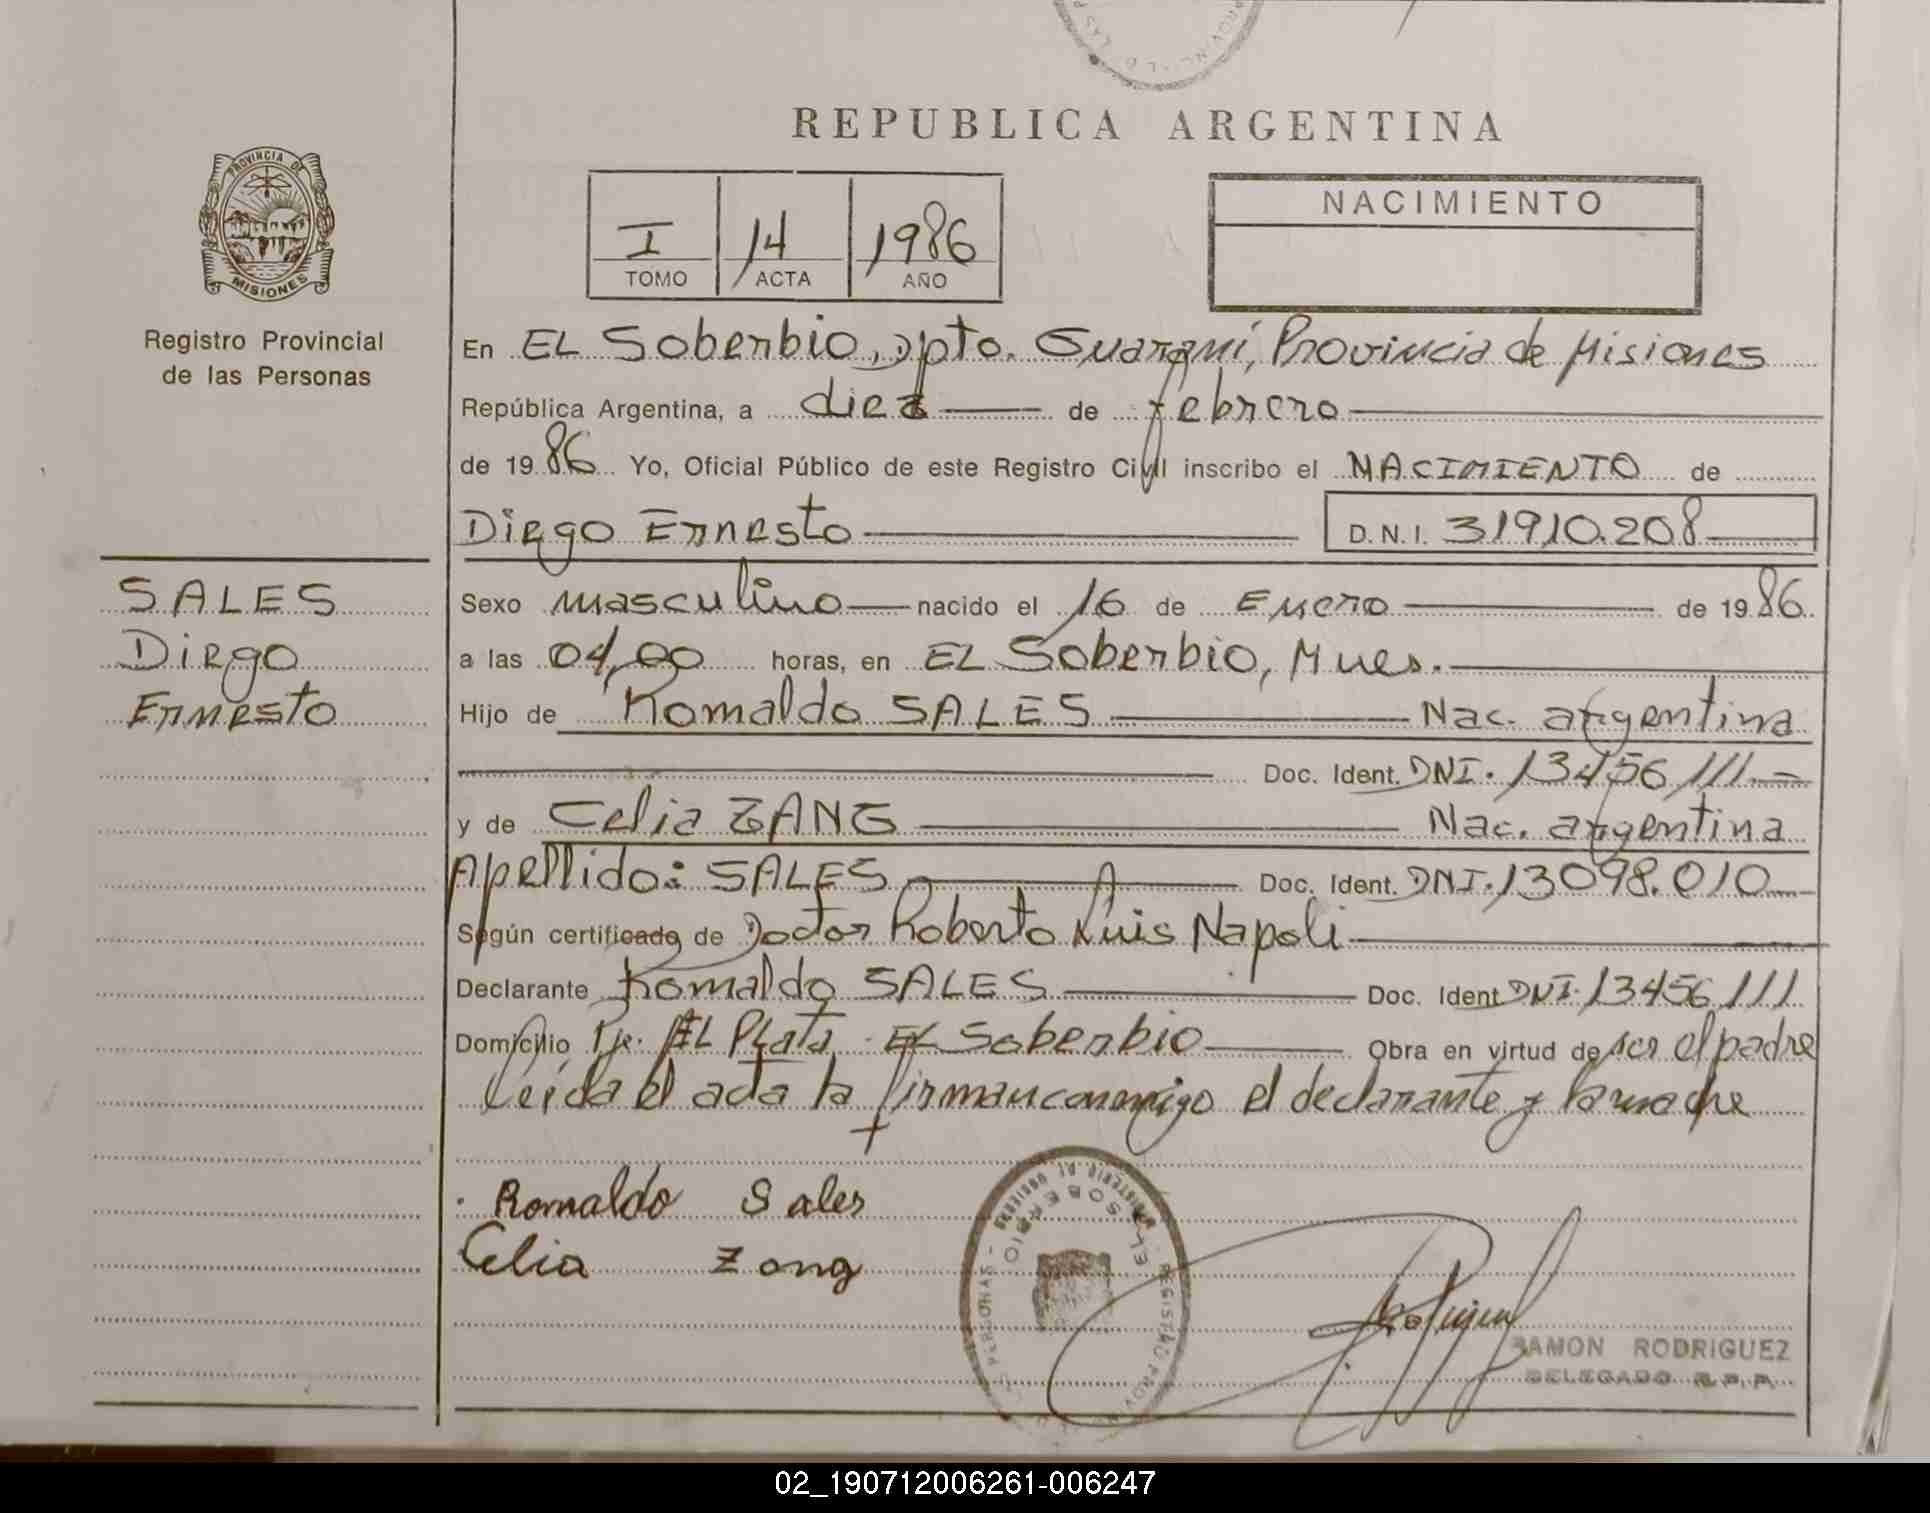 REPUBLICA ARGENTINA
PROVINCIA DE
MISIONES
Registro Provincial
de las Personas
I TOMO
14 ACTA
1986 AÑO
NACIMIENTO
En EL Soberbio, Dpto. Guaraní, Provincia de Misiones
República Argentina, a diez de febrero
de 1986 Yo, Oficial Público de este Registro Civil inscribo el NACIMIENTO de
Diego Ernesto D.N.I. 31910.208
SALES
Diego
Ernesto
Sexo masculino nacido el 16 de Enero de 1986
a las 04,00 horas, en EL Soberbio, Mnes.
Hijo de Romaldo SALES Nac. argentina
Doc. Ident. DNI. 13456111
y de Celia ZANG Nac. argentina
Apellido: SALES Doc. Ident. DNI. 13098.010
Según certificado de Doctor Roberto Luis Napoli
Declarante Romaldo SALES Doc. Ident DNI. 13456111
Domicilio EL Plata. EL Soberbio Obra en virtud de ser el padre
Leída el acta la firman conmigo el declarante y la madre
Romaldo Sales
Celia Zang
EL SOBERBIO
RAMON RODRIGUEZ
DELEGADO R.P.P.
02_190712006261-006247